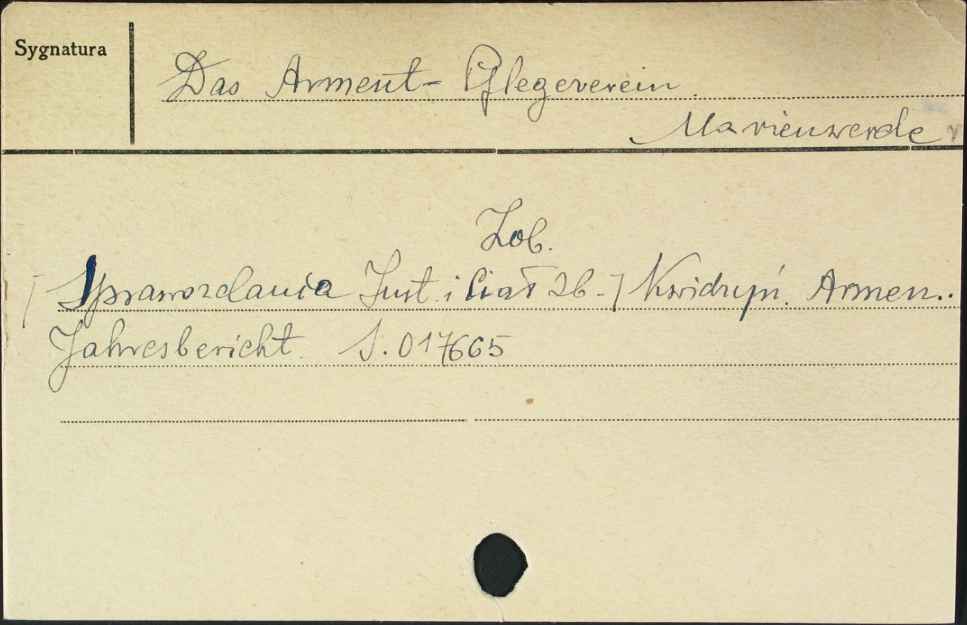 Sygnatura
Das Arment- Pflegeverein
Marienwerder
Zob.
[Sprawozdania Inst. i Ciał zb-] Kwidzyń. Armen..
Jahresbericht. S. 017665